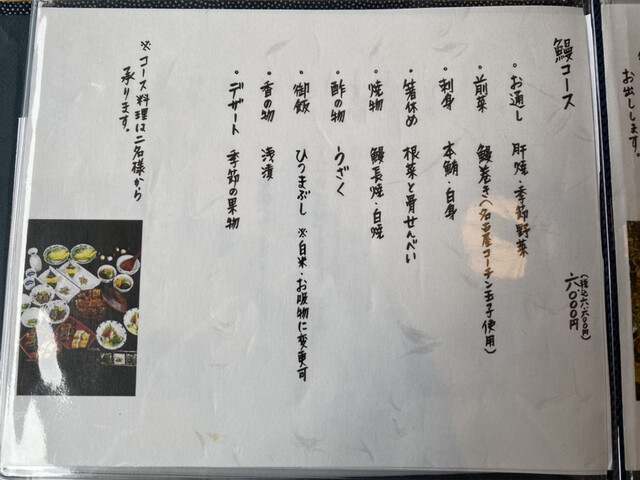 鰻コース
六、〇〇〇円
(税込六、六〇〇円)
・お通し 肝焼・季節野菜
・前菜 鰻巻き(名古屋コーチン玉子使用)
・刺身 本鮪・白身
・箸休め 根菜と骨せんべい
・焼物 鰻長焼・白焼
・酢の物 うざく
・御飯 ひつまぶし ※白米・お吸物に変更可
・香の物 浅漬
・デザート 季節の果物
※コース料理は二名様から
承ります。
お出しします。